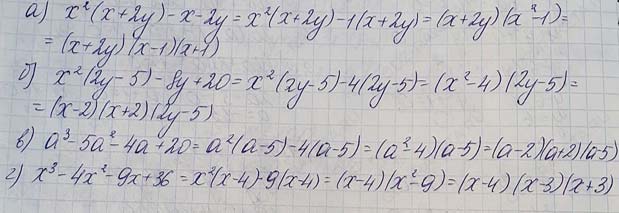 а) x²(x+2y)-x-2y=x²(x+2y)-1(x+2y)=(x+2y)(x²-1)=
=(x+2y)(x-1)(x+1)
б) x²(2y-5)-8y+20=x²(2y-5)-4(2y-5)=(x²-4)(2y-5)=
=(x-2)(x+2)(2y-5)
в) a³-5a²-4a+20=a²(a-5)-4(a-5)=(a²-4)(a-5)=(a-2)(a+2)(a-5)
г) x³-4x²-9x+36=x²(x-4)-9(x-4)=(x-4)(x²-9)=(x-4)(x-3)(x+3)